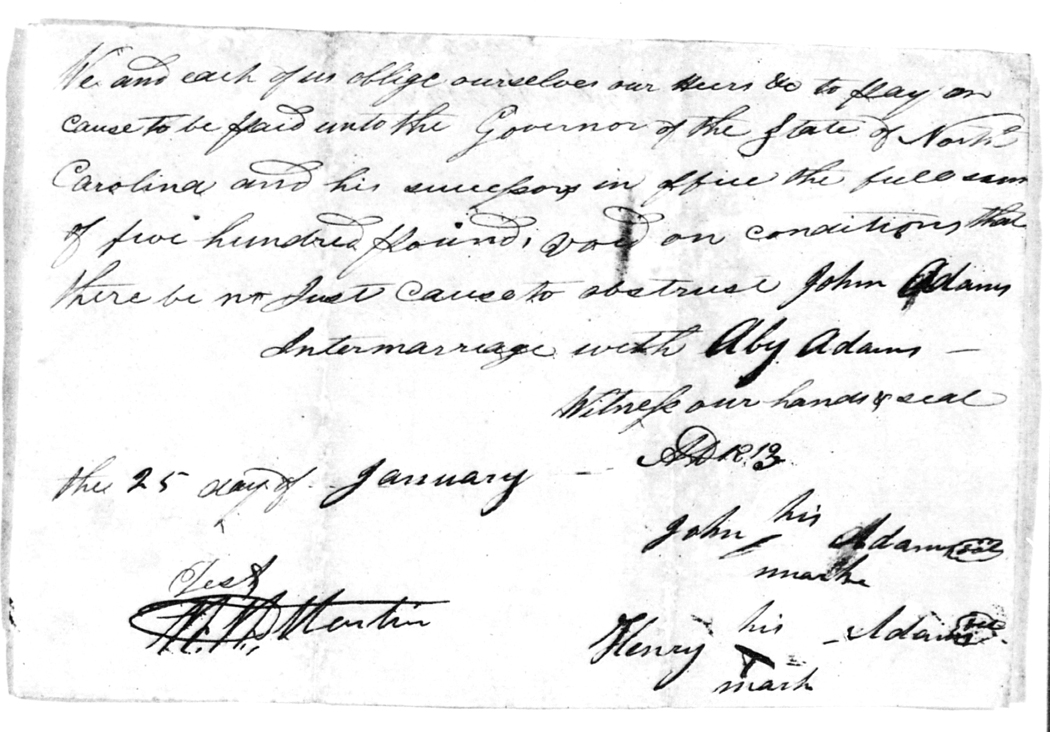 We and each of us oblige ourselves our Heirs &c to pay or
cause to be paid unto the Governor of the State of North
Carolina and his successors in office the full sum
of five hundred pounds, void on conditions that
there be no Just cause to obstruct John Adams
Intermarriage with Aby Adams —
Witness our hands & seal
the 25 day of January — AD 1813
his
John Adams seal
marke
Test
his
Henry Adams seal
mark